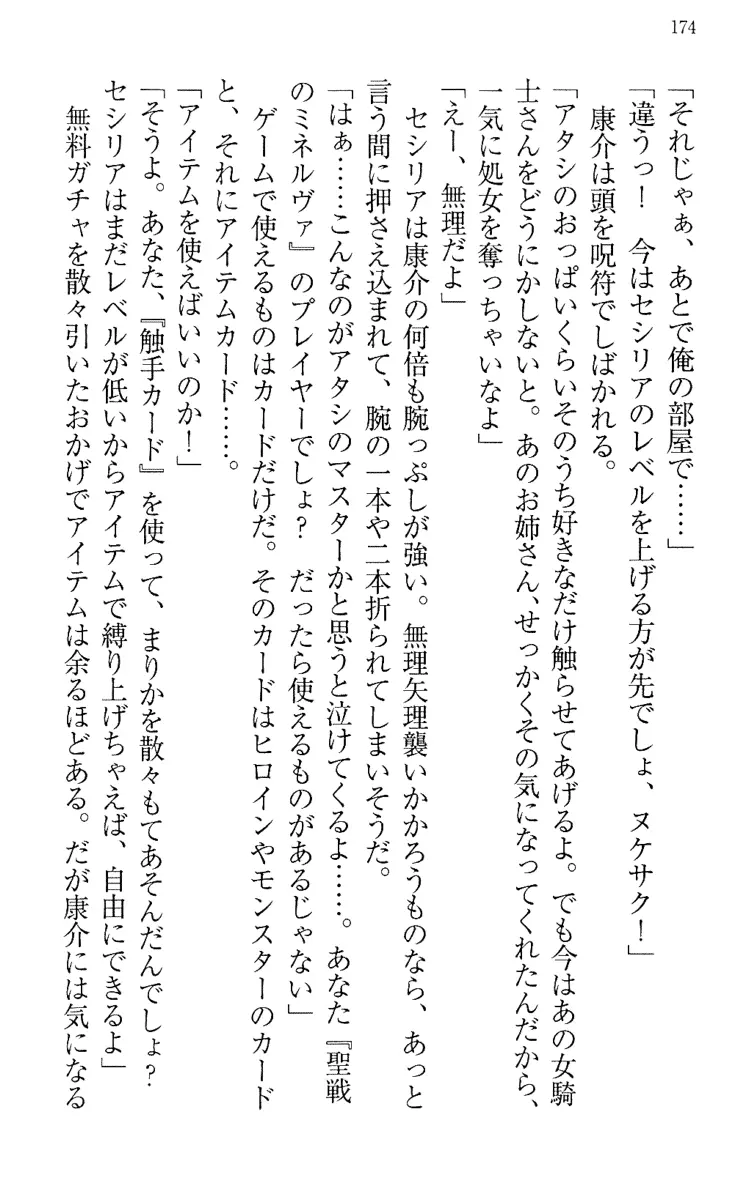 174
「それじゃぁ、あとで俺の部屋で……」
「違うっ！　今はセシリアのレベルを上げる方が先でしょ、ヌケサク！」
　康介は頭を呪符でしばかれる。
「アタシのおっぱいくらいそのうち好きなだけ触らせてあげるよ。でも今はあの女騎
士さんをどうにかしないと。あのお姉さん、せっかくその気になってくれたんだから、
一気に処女を奪っちゃいなよ」
「えー、無理だよ」
　セシリアは康介の何倍も腕っぷしが強い。無理矢理襲いかかろうものなら、あっと
言う間に押さえ込まれて、腕の一本や二本折られてしまいそうだ。
「はぁ……こんなのがアタシのマスターかと思うと泣けてくるよ……。あなた『聖戦
のミネルヴァ』のプレイヤーでしょ？　だったら使えるものがあるじゃない」
　ゲームで使えるものはカードだけだ。そのカードはヒロインやモンスターのカード
と、それにアイテムカード……。
「アイテムを使えばいいのか！」
「そうよ。あなた、『触手カード』を使って、まりかを散々もてあそんだんでしょ？
セシリアはまだレベルが低いからアイテムで縛り上げちゃえば、自由にできるよ」
　無料ガチャを散々引いたおかげでアイテムは余るほどある。だが康介には気になる